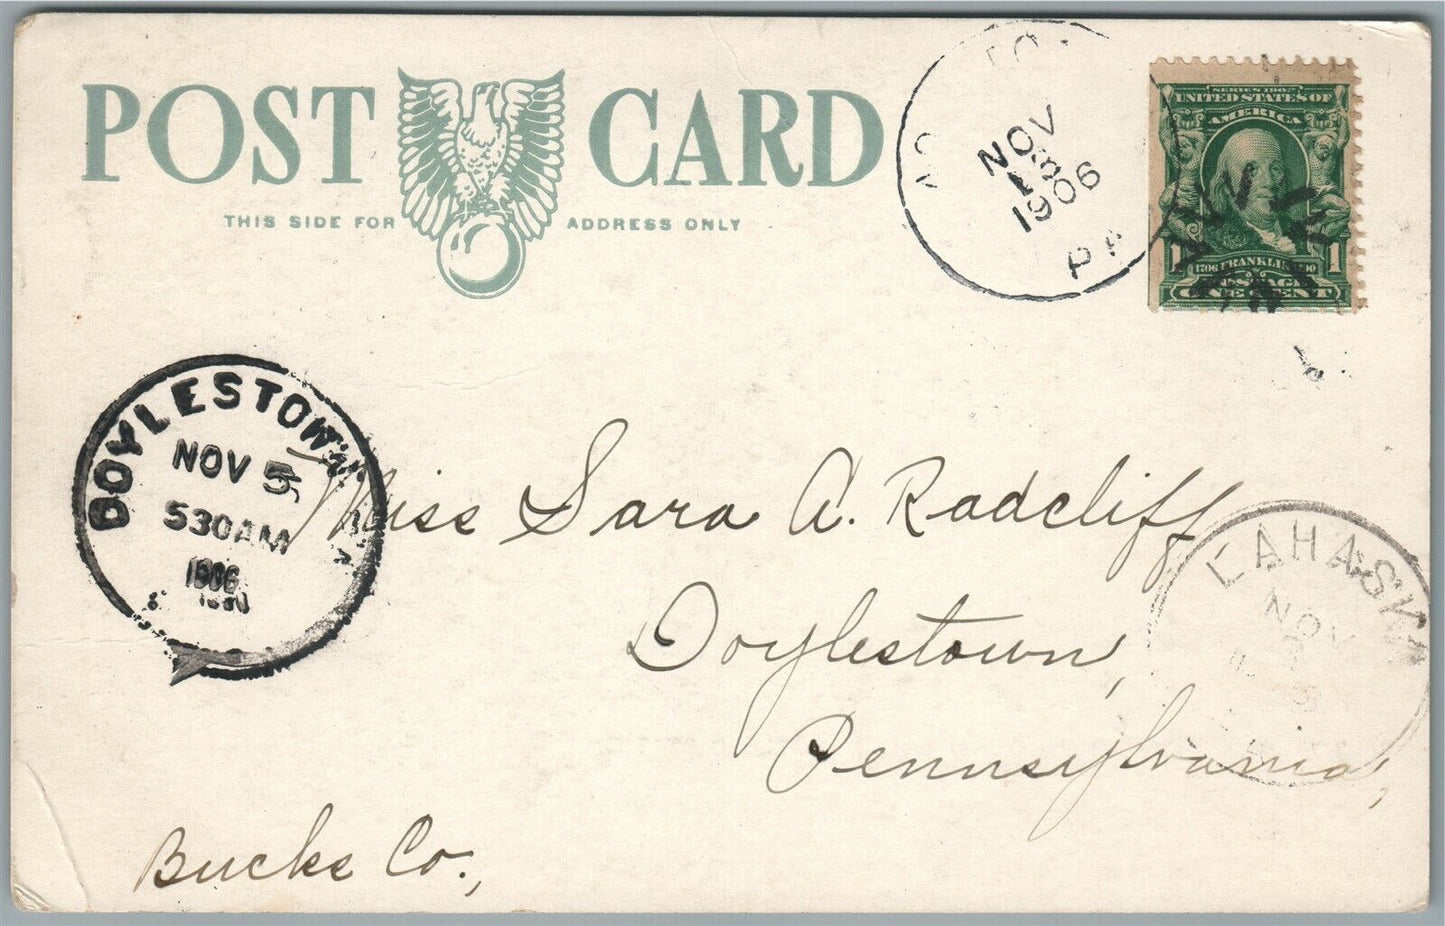 POST CARD
THIS SIDE FOR ADDRESS ONLY
NOV
1906
PA
SERIES 1902
UNITED STATES OF
AMERICA
1 1706 FRANKLIN 1790 1
POSTAGE
ONE CENT
DOYLESTOWN
NOV 5
530AM
1906
Miss Sara A. Radcliff
Doylestown,
Pennsylvania,
Bucks Co.,
LAHASKA
NOV